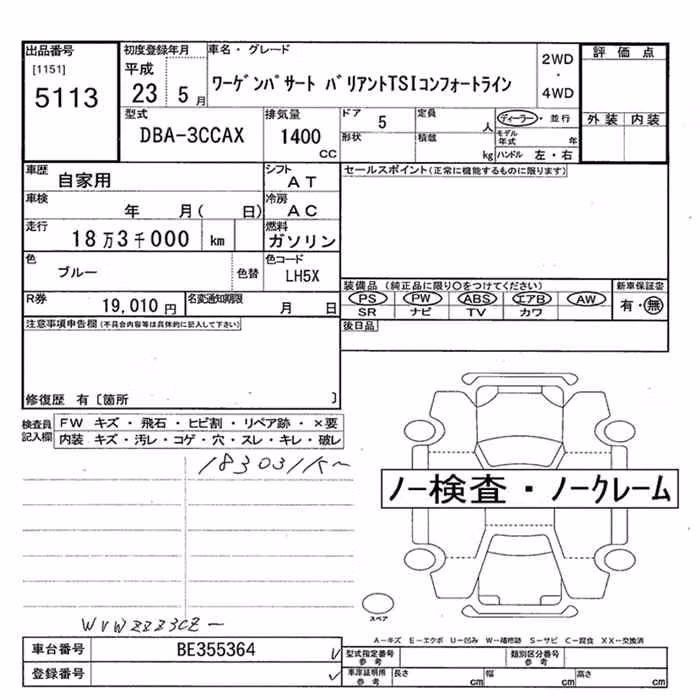 出品番号 初度登録年月 車名・グレード 2WD・4WD 評価点
[1151] 平成
5113 23 5月 ワーゲンパサート バリアントTSIコンフォートライン
外装 内装
型式 DBA-3CCAX 排気量 1400 CC ドア 5 定員 人 ディーラー・並行
形状 積載 kg モデル年式 年
ハンドル 左・右
車歴 自家用 シフト AT セールスポイント(正常に機能するものに限ります)
車検 年 月( 日) 冷房 AC
走行 18万3千000 km 燃料 ガソリン
色 ブルー 色替 色コード LH5X
装備品(純正品に限り○をつけてください) 新車保証書
R券 19,010円 名変通知期限 月 日 PS PW ABS エアB AW 有・無
SR ナビ TV カワ
注意事項申告欄(不具合内容等は具体的に記入して下さい) 後日品
修復歴 有〔箇所 〕
検査員記入欄 FW キズ・飛石・ヒビ割・リペア跡・×要
内装 キズ・汚レ・コゲ・穴・スレ・キレ・破レ
183031K~
ノー検査・ノークレーム
スペア
WVWZZZ3CZ~
A-キズ E-エクボ U-凹み W-補修跡 S-サビ C-腐食 XX-交換済
車台番号 BE355364 型式指定番号 参考 類別区分番号 参考
登録番号 車庫証明所 参考 長さ cm 幅 cm 高さ cm